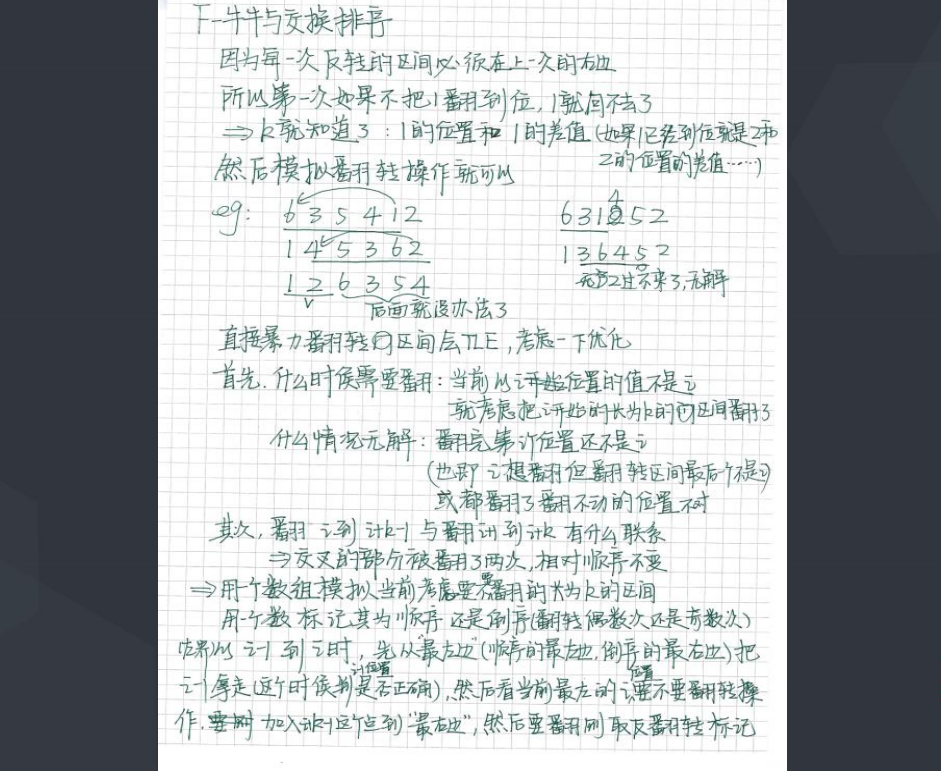 F-牛牛与交换排序
因为每一次反转的区间必须在上一次的右边
所以第一次如果不把1翻到位,1就回不去了
⇒ k就知道了:1的位置和1的差值(如果1已经到位就是2和
2的位置的差值……)
然后模拟翻转操作就可以
eg: 6 3 5 4 1 2
1 4 5 3 6 2
1 2 6 3 5 4
后面就没办法了
6 3 1 4 5 2
1 3 6 4 5 2
2过不来了,无解
直接暴力翻转区间会TLE,考虑一下优化
首先,什么时候需要翻:当前以i开始位置的值不是i
就考虑把i开始的长为k的区间翻了
什么情况无解:翻完第i个位置还不是i
(也即 i想翻但翻转区间最后个不是i)
或都翻了翻不动的位置不对
其次,翻 i到i+k-1 与翻i+1到i+k 有什么联系
⇒交叉的部分被翻了两次,相对顺序不变
⇒用个数组模拟当前考虑要翻的长为k的区间
用个数标记其为顺序还是倒序(翻转偶数次还是奇数次)
从 i-1 到 i时,先从"最左边"(顺序的最左边,倒序的最右边)把
i-1拿走(这个时候判i-1位置是否正确),然后看当前最左的i位置要不要翻转操
作. 加入i+k-1这个点到"最右边",然后要翻则取反翻转标记